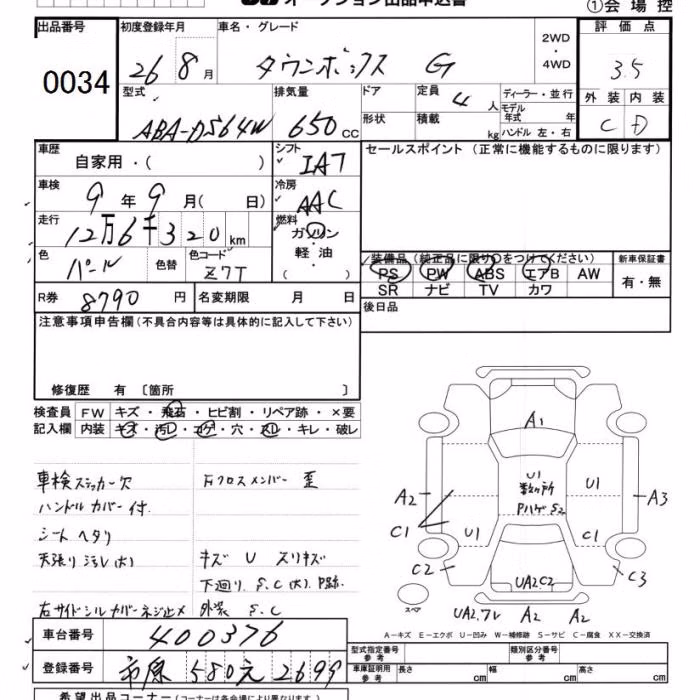 オークション出品申込書
①会場控
出品番号 初度登録年月 車名・グレード 評価点
0034 26 8月 タウンボックス G 2WD・4WD 3.5
型式 排気量 ドア 定員 ディーラー・並行 外装 内装
ABA-DS64W 650cc 4人 モデル年式 年 C D
形状 積載 kg ハンドル 左・右
車歴 シフト セールスポイント（正常に機能するものに限ります）
自家用・（ ） IAT
車検 冷房
9年9月（ 日） AAC
走行 燃料
12万6千320km ガソリン・軽油・（ ）
色 色替 色コード 装備品（純正品に限り○をつけてください） 新車保証書
パール Z7T PS PW ABS エアB AW 有・無
SR ナビ TV カワ
R券 8790円 名変期限 月 日 後日品
注意事項申告欄（不具合内容等は具体的に記入して下さい）
修復歴 有〔箇所 〕
検査員 FW キズ・飛石・ヒビ割・リペア跡・×要
記入欄 内装 キズ・汚レ・コゲ・穴・スレ・キレ・破レ
車検ステッカー欠 右クロスメンバー 歪
ハンドルカバー付
シート ヘタリ
天張り汚レ(大) キズ U スリキズ
下廻り S.C(大) P跡.
右サイドシルカバーネジ止メ 外装 S.C
A1
U1 数ヶ所 Pハゲ S2
A2 U1 A3
C1 U1 C1
C2 UA2.C2 C3
スペア UA2.7レ A2 A2
A－キズ E－エクボ U－凹み W－補修跡 S－サビ C－腐食 XX－交換済
車台番号 400376
登録番号 市原 580 え 2699
型式指定番号 参考 類別区分番号 参考
車庫証明用 参考 長さ cm 幅 cm 高さ cm
希望出品コーナー（コーナーは各会場により異なります）